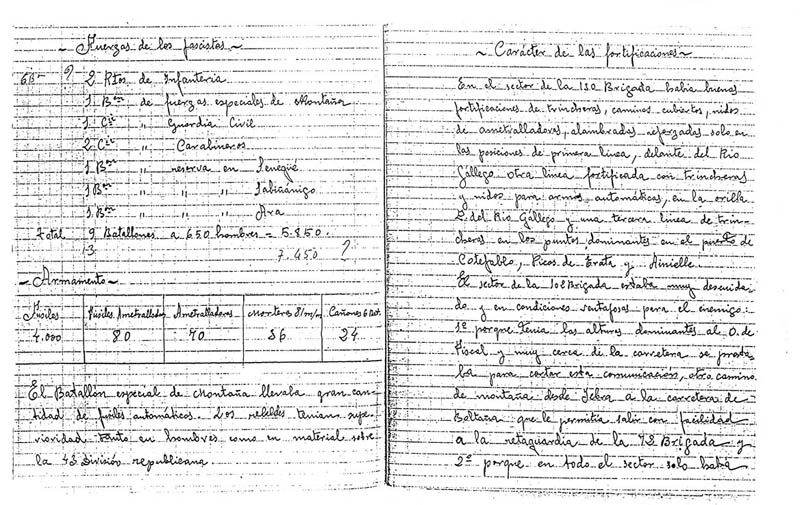 ~ Fuerzas de los fascistas ~
6 Bon ? 2 Rtos de Infanteria
1 Bon de fuerzas especiales de Montaña
1 Cia " Guardia Civil
2 Cia " Carabineros
1 Bon " reserva en Senegüe
1 Bon " " " Sabiñánigo
1 Bon " " " Ara
Total 9 Batallones a 650 hombres = 5.850.
13 7.450 ?
~ Armamento ~
Fusiles Fusiles Ametrallador Ametralladoras Morteros 81 m/m Cañones 6 Bat.
4.000 80 70 36 24
El Batallón especial de Montaña llevaba gran can-
tidad de fusiles automáticos. Los rebeldes tenian supe-
rioridad tanto en hombres como en material sobre
la 43 División republicana.
~ Carácter de las fortificaciones ~
En el sector de la 130 Brigada habia buenas
fortificaciones de trincheras, caminos cubiertos, nidos
de ametralladoras, alambradas reforzadas solo en
las posiciones de primera linea, delante del Rio
Gállego otra linea fortificada con trincheras
y nidos para armas automáticas, en la orilla
del Rio Gállego y una tercera linea de trin-
cheras en los puntos dominantes en el puerto de
Cotefablo, Picos de Erata y Ainielle.
El sector de la 102 Brigada estaba muy descuida
do y en condiciones ventajosas para el enemigo:
1º porque tenia las alturas dominantes al O. de
Fiscal y muy cerca de la carretera se presta
ba para cortar esta comunicación, otro camino
de montaña desde Yebra a la carretera de
Boltaña que le permitia salir con facilidad
a la retaguardia de la 72 Brigada y
2º porque en todo el sector solo habia